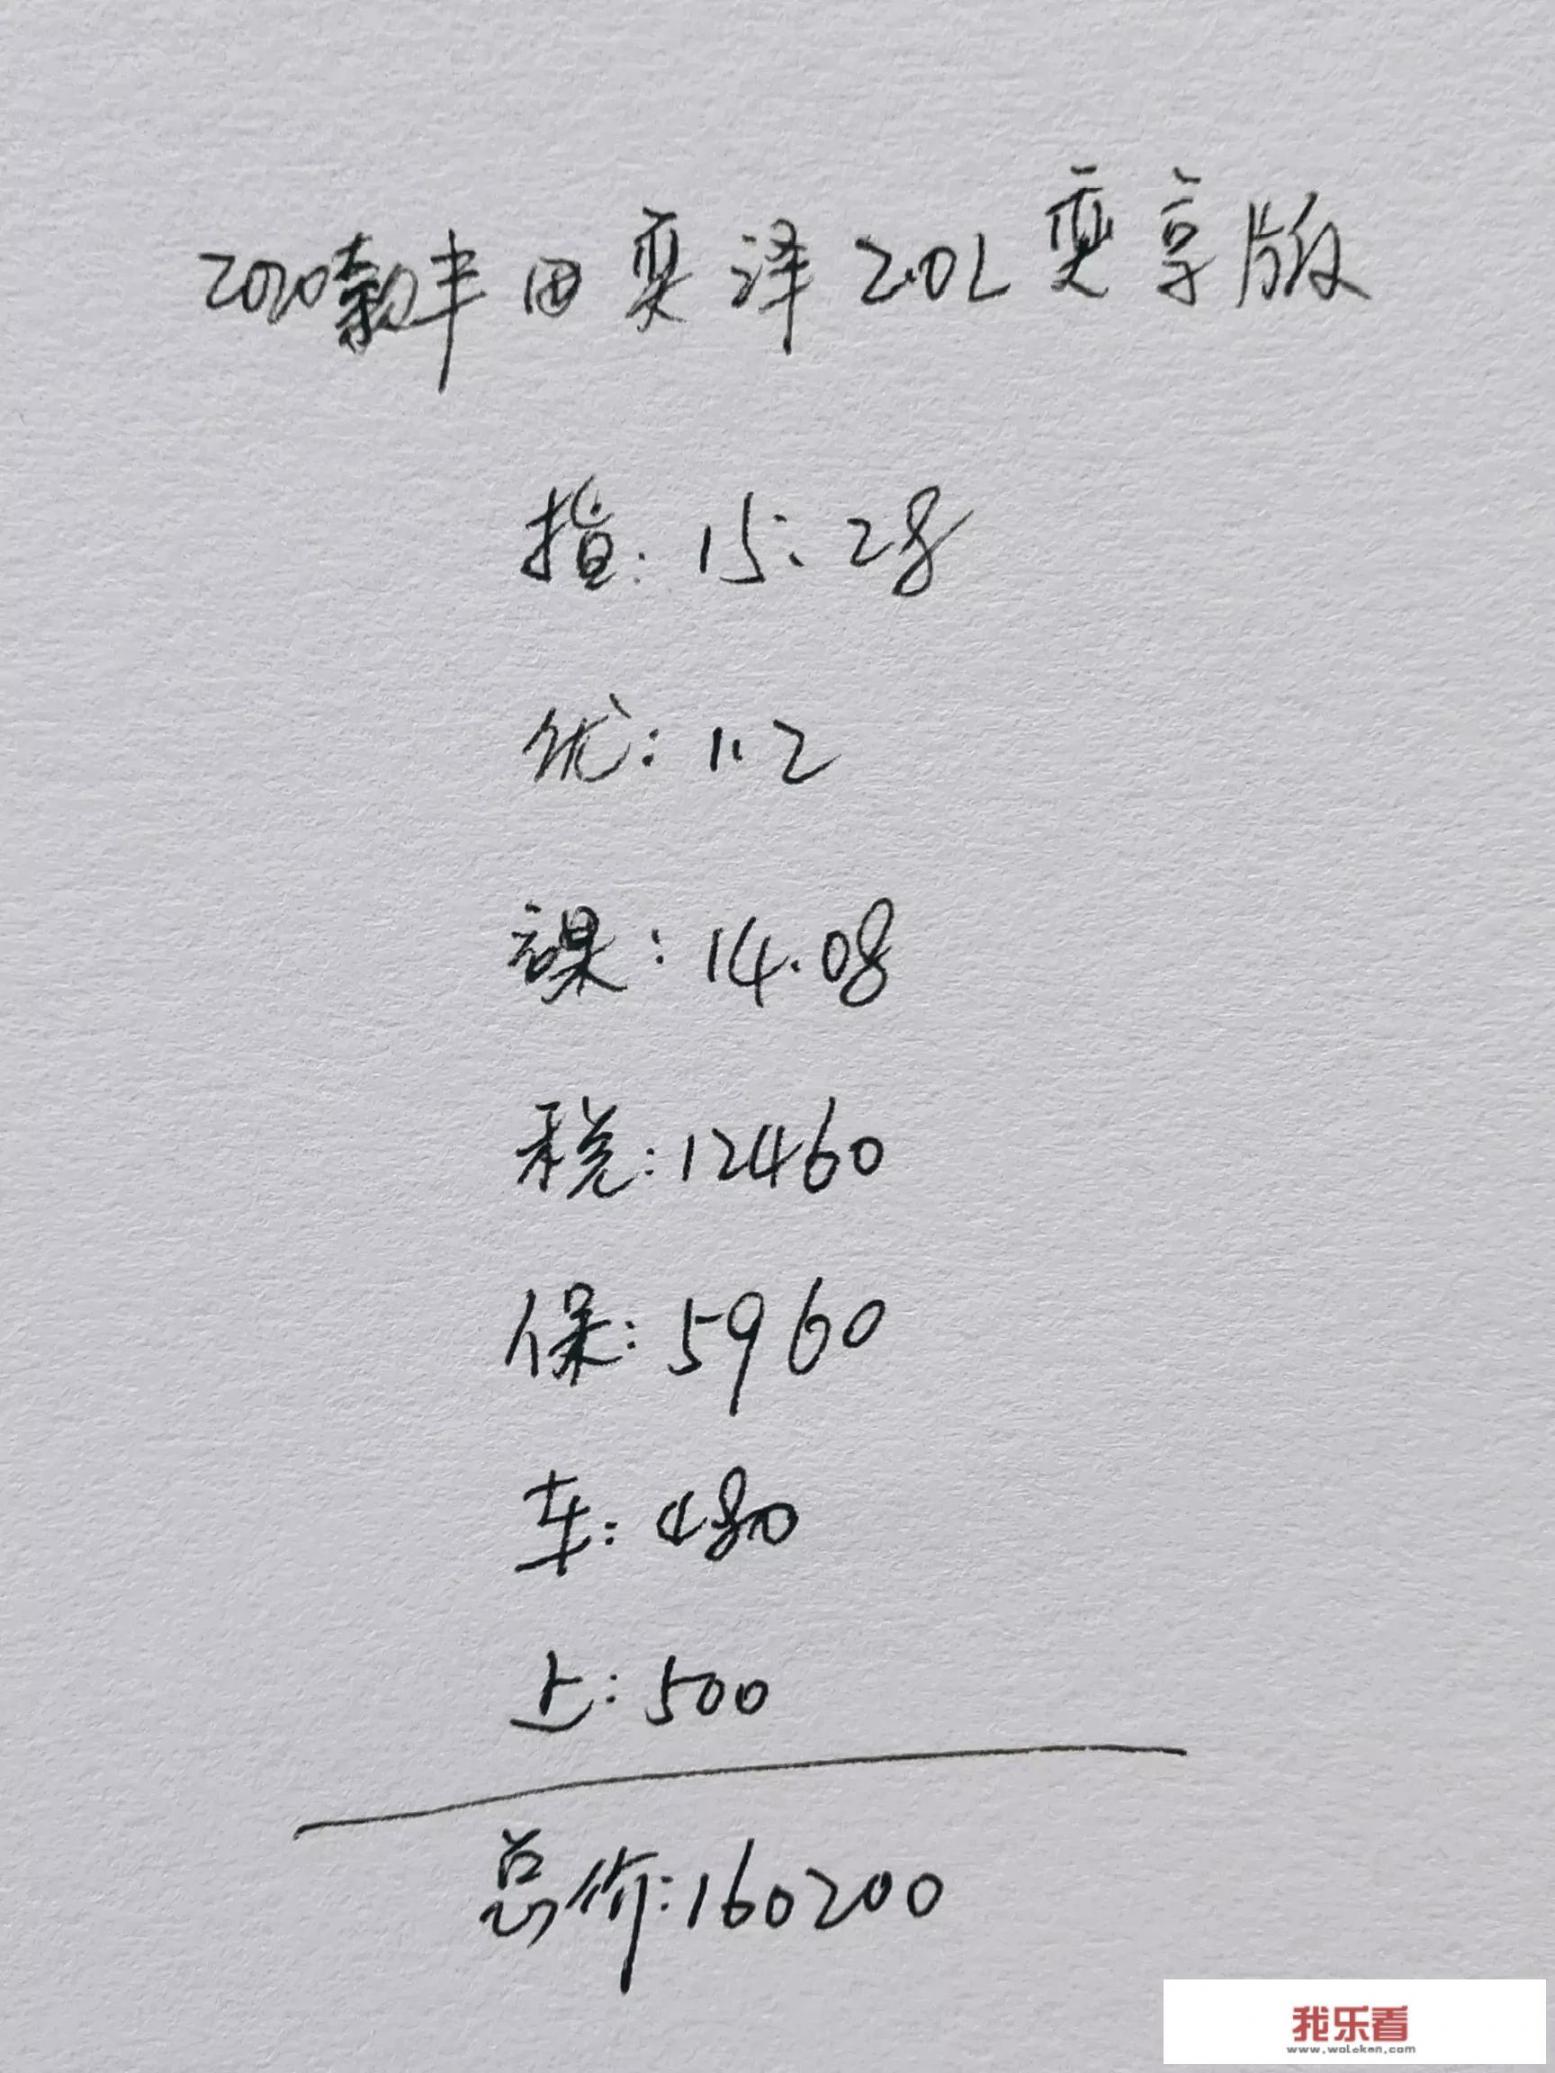 2020款丰田奕泽2.0L奕享版
指:15.28
优:1.2
裸:14.08
税:12460
保:5960
车:480
上:500
总价:160200
我乐看
www.woleken.com